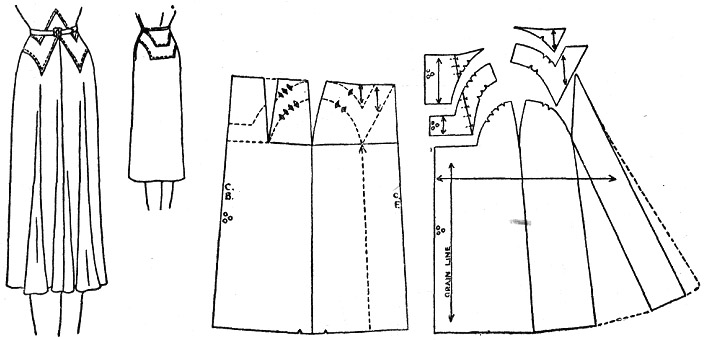 C.
B.
C.
F.
GRAIN LINE